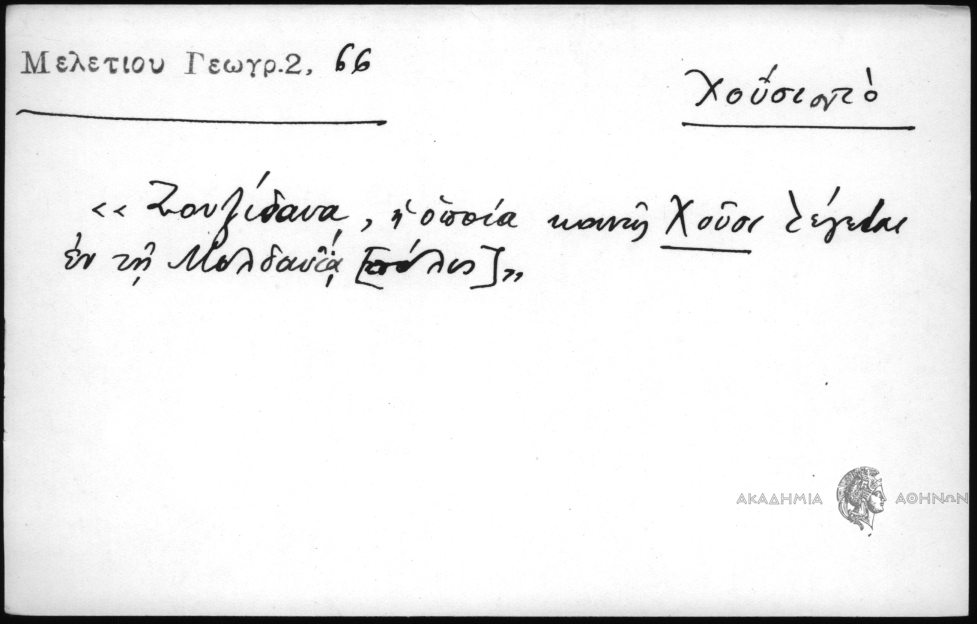 Μελετιου Γεωγρ.2, 66
Χοῦσι, τὸ
«Ζουζίδαυα, ἡ ὁποία κοινῶς Χοῦσι λέγεται
ἐν τῇ Μολδαυίᾳ [πόλις]»
ΑΚΑΔΗΜΙΑ ΑΘΗΝΩΝ